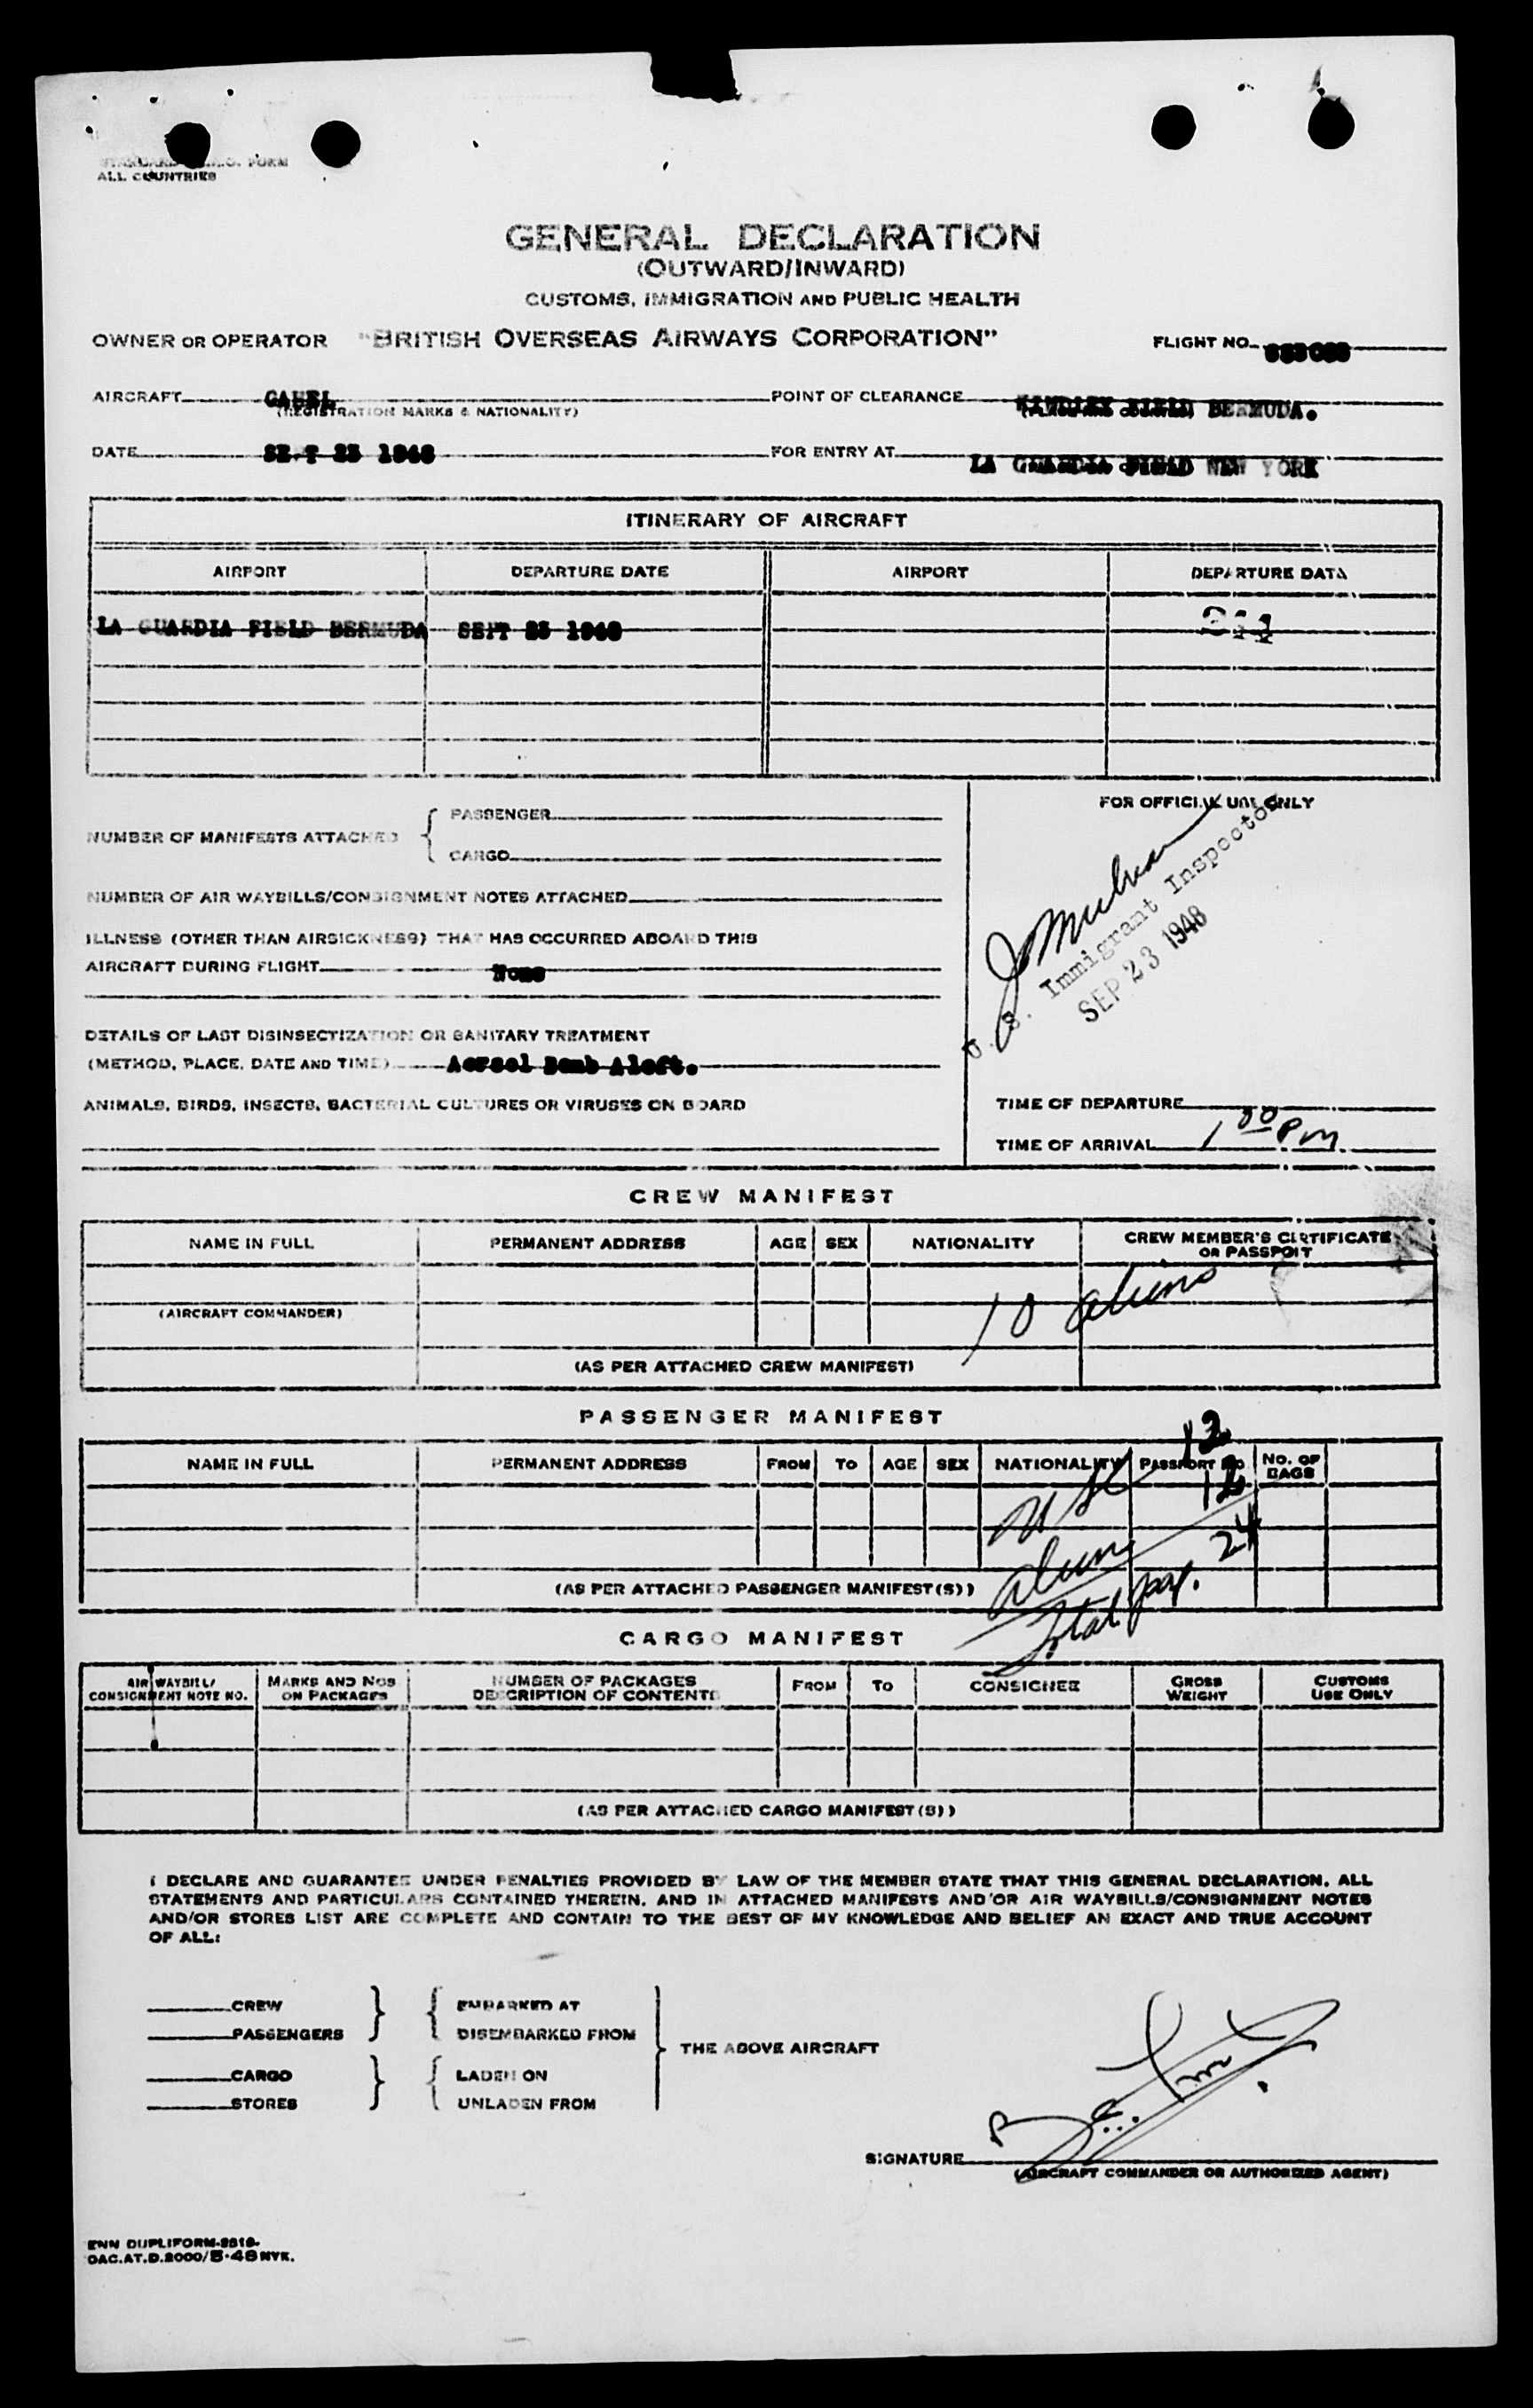 ALL COUNTRIES
GENERAL DECLARATION
(OUTWARD/INWARD)
CUSTOMS, IMMIGRATION AND PUBLIC HEALTH
OWNER OR OPERATOR "BRITISH OVERSEAS AIRWAYS CORPORATION" FLIGHT NO.
AIRCRAFT POINT OF CLEARANCE KINDLEY FIELD BERMUDA.
(REGISTRATION MARKS & NATIONALITY)
DATE 1948 FOR ENTRY AT LA GUARDIA FIELD NEW YORK
ITINERARY OF AIRCRAFT
AIRPORT DEPARTURE DATE AIRPORT DEPARTURE DATA
LA GUARDIA FIELD BERMUDA SEPT 1948
FOR OFFICIAL USE ONLY
NUMBER OF MANIFESTS ATTACHED { PASSENGER
CARGO
NUMBER OF AIR WAYBILLS/CONSIGNMENT NOTES ATTACHED
ILLNESS (OTHER THAN AIRSICKNESS) THAT HAS OCCURRED ABOARD THIS
AIRCRAFT DURING FLIGHT None
U. S. Immigrant Inspector
SEP 23 1948
DETAILS OF LAST DISINSECTIZATION OR SANITARY TREATMENT
(METHOD, PLACE, DATE AND TIME) Aersol Bomb Aloft.
ANIMALS, BIRDS, INSECTS, BACTERIAL CULTURES OR VIRUSES ON BOARD
TIME OF DEPARTURE
TIME OF ARRIVAL 1 00 PM
CREW MANIFEST
NAME IN FULL PERMANENT ADDRESS AGE SEX NATIONALITY CREW MEMBER'S CERTIFICATE
OR PASSPORT
10 aliens
(AIRCRAFT COMMANDER)
(AS PER ATTACHED CREW MANIFEST)
PASSENGER MANIFEST
NAME IN FULL PERMANENT ADDRESS FROM TO AGE SEX NATIONALITY PASSPORT NO NO. OF
BAGS
12
12
aliens
Total pas. 24
(AS PER ATTACHED PASSENGER MANIFEST(S))
CARGO MANIFEST
AIR WAYBILL/
CONSIGNMENT NOTE NO. MARKS AND NOS
ON PACKAGES NUMBER OF PACKAGES
DESCRIPTION OF CONTENTS FROM TO CONSIGNEE GROSS
WEIGHT CUSTOMS
USE ONLY
(AS PER ATTACHED CARGO MANIFEST(S))
I DECLARE AND GUARANTEE UNDER PENALTIES PROVIDED BY LAW OF THE MEMBER STATE THAT THIS GENERAL DECLARATION, ALL
STATEMENTS AND PARTICULARS CONTAINED THEREIN, AND IN ATTACHED MANIFESTS AND/OR AIR WAYBILLS/CONSIGNMENT NOTES
AND/OR STORES LIST ARE COMPLETE AND CONTAIN TO THE BEST OF MY KNOWLEDGE AND BELIEF AN EXACT AND TRUE ACCOUNT
OF ALL:
CREW } { EMBARKED AT
PASSENGERS DISEMBARKED FROM
THE ABOVE AIRCRAFT
CARGO } { LADEN ON
STORES UNLADEN FROM
SIGNATURE
(AIRCRAFT COMMANDER OR AUTHORIZED AGENT)
ENN DUPLIFORM-
OAC.AT.D.2000/5-48 NYK.